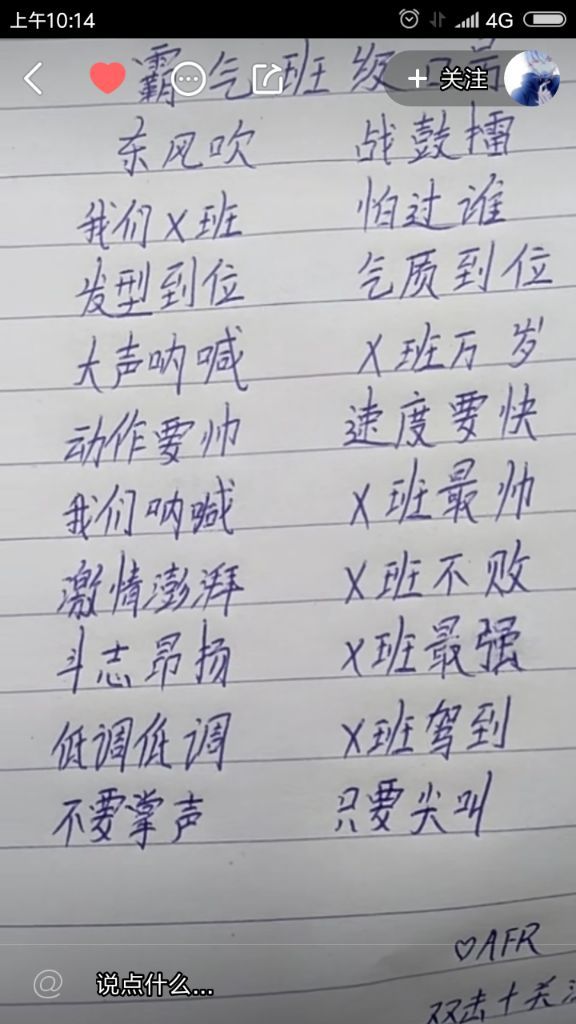 上午10:14 4G
霸气班级口号
+ 关注
东风吹 战鼓擂
我们X班 怕过谁
发型到位 气质到位
大声呐喊 X班万岁
动作要帅 速度要快
我们呐喊 X班最帅
激情澎湃 X班不败
斗志昂扬 X班最强
低调低调 X班驾到
不要掌声 只要尖叫
♡AFR
双击+关注
@ 说点什么...